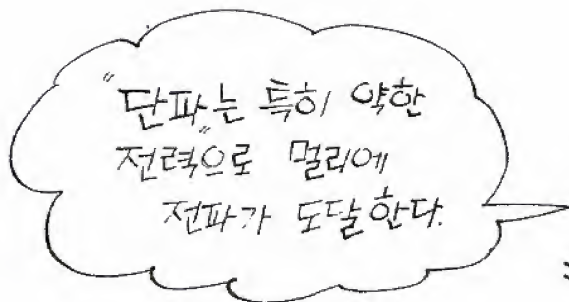 "단파는 특히 약한
전력"으로 멀리에
전파가 도달한다.